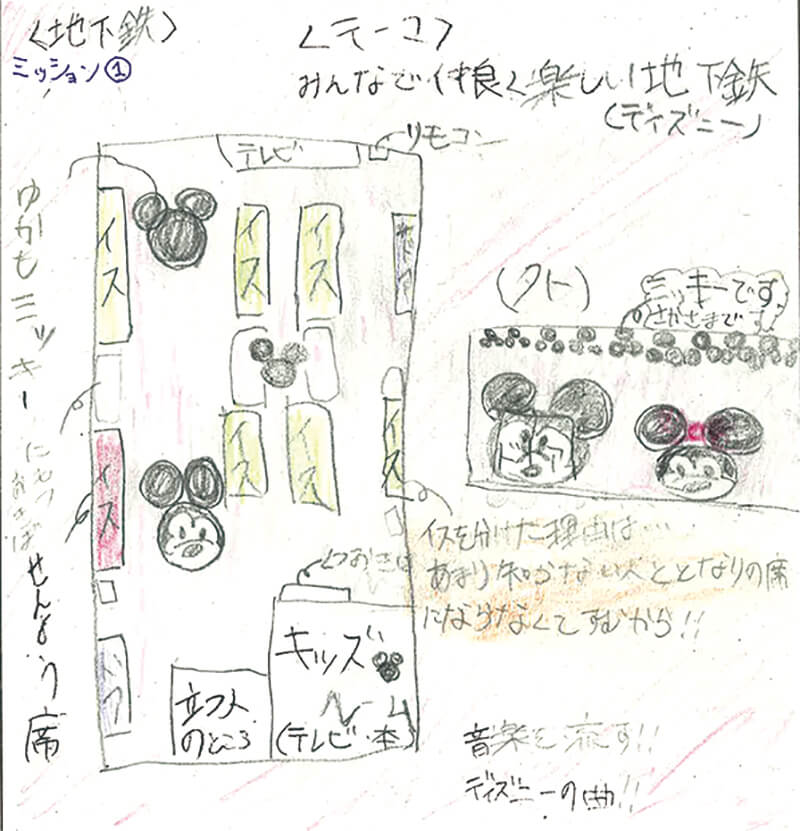 〈地下鉄〉
ミッション①
〈テーマ〉
みんなで仲良く楽しい地下鉄
(ディズニー)
テレビ
リモコン
ゆかもミッキー
イス
イス
イス
ドア
(外)
ミッキーです
のさかさまです
ドア
にもつ
おきば
イス
イス
イス
イス
せんよう席
イスを分けた理由は…
あまり知らない人ととなりの席
にならなくてすむから!!
くつおきば
ドア
立つ人
のところ
キッズ
ルーム
(テレビ・本)
音楽を流す!!
ディズニーの曲!!